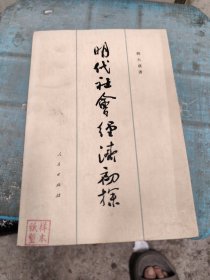 韩大成著
明代社會經濟初探
人民出版社
样本